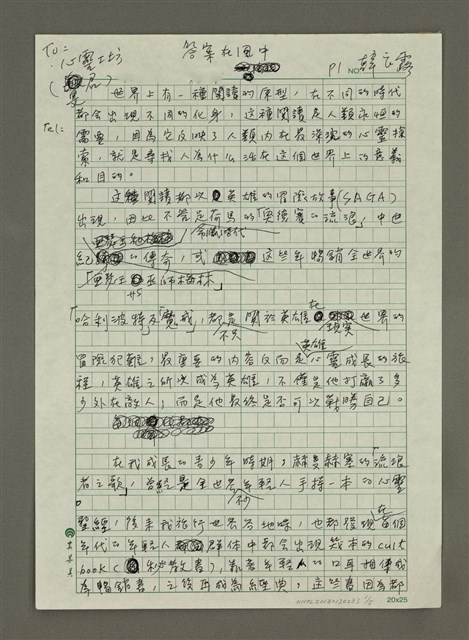 TO:
心靈工坊
答案在風中
P1 NO.
韓良露
Tel:
世界上有一種閱讀的原型，在不同的時代
都会出現不同的化身，這種閱讀是人類永恒的
需要，因為它反映了人類内在最深現的心靈探
索，就是尋找人為什么活在這個世界上的意義
和目的。
這種閱讀都以英雄的冒險故事(SAGA)
出現，因此不管是荷馬的「奧德賽的流浪」中世
紀的傳奇，或這些年暢銷全世界的
「亞瑟王與巫師梅林」
「哈利波特」及「魔戒」，都是關於英雄在世界的
不只 現實
冒險犯難，最重要的内容反而是英雄心靈成長的旅
程，英雄之所以成為英雄，不僅是他打贏了多
少外在敵人，而是他最終是否可以戰勝自己。
在我成長的青少年時期，赫曼赫塞的「流浪
者之歌」，曾經是全世界年輕人手持一本的心靈
聖經，後來我旅行世界各地時，也都發現在每個
年代的年輕人群体中都会出現幾本的cult
book（秘教書），靠著年輕人的口耳相傳成
為暢銷書，之後再成為經典，這些書因為都
20×25